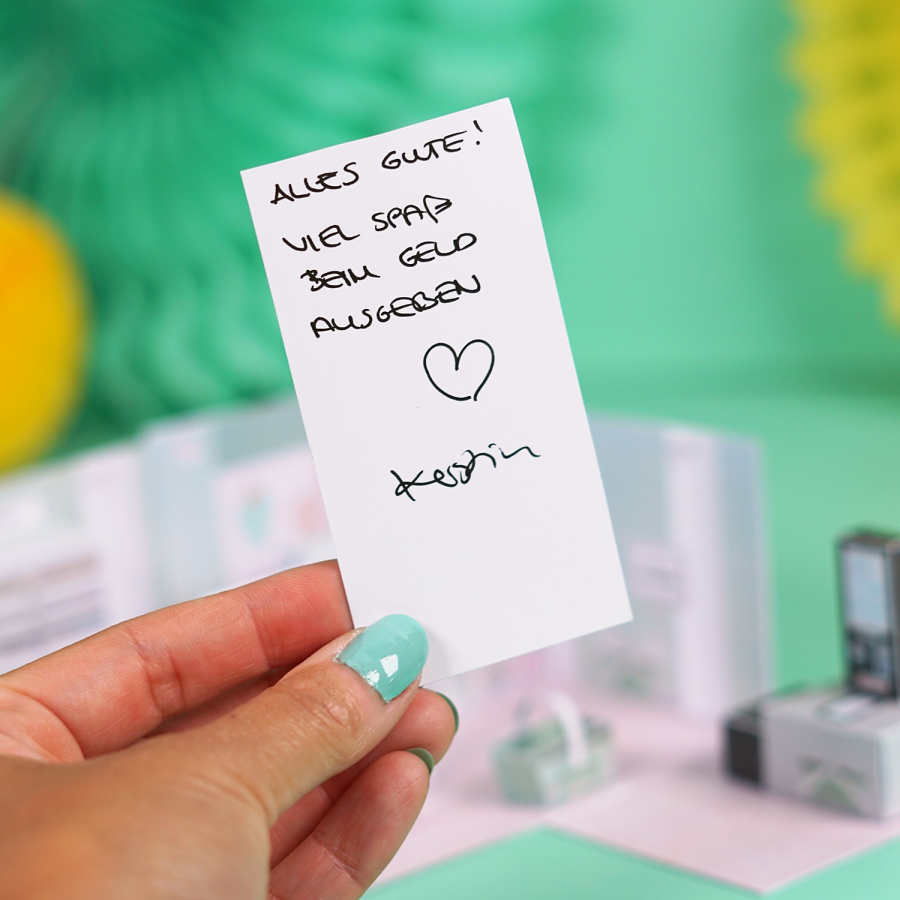 ALLES GUTE!
VIEL SPAß
BEIM GELD
AUSGEBEN
Kerstin